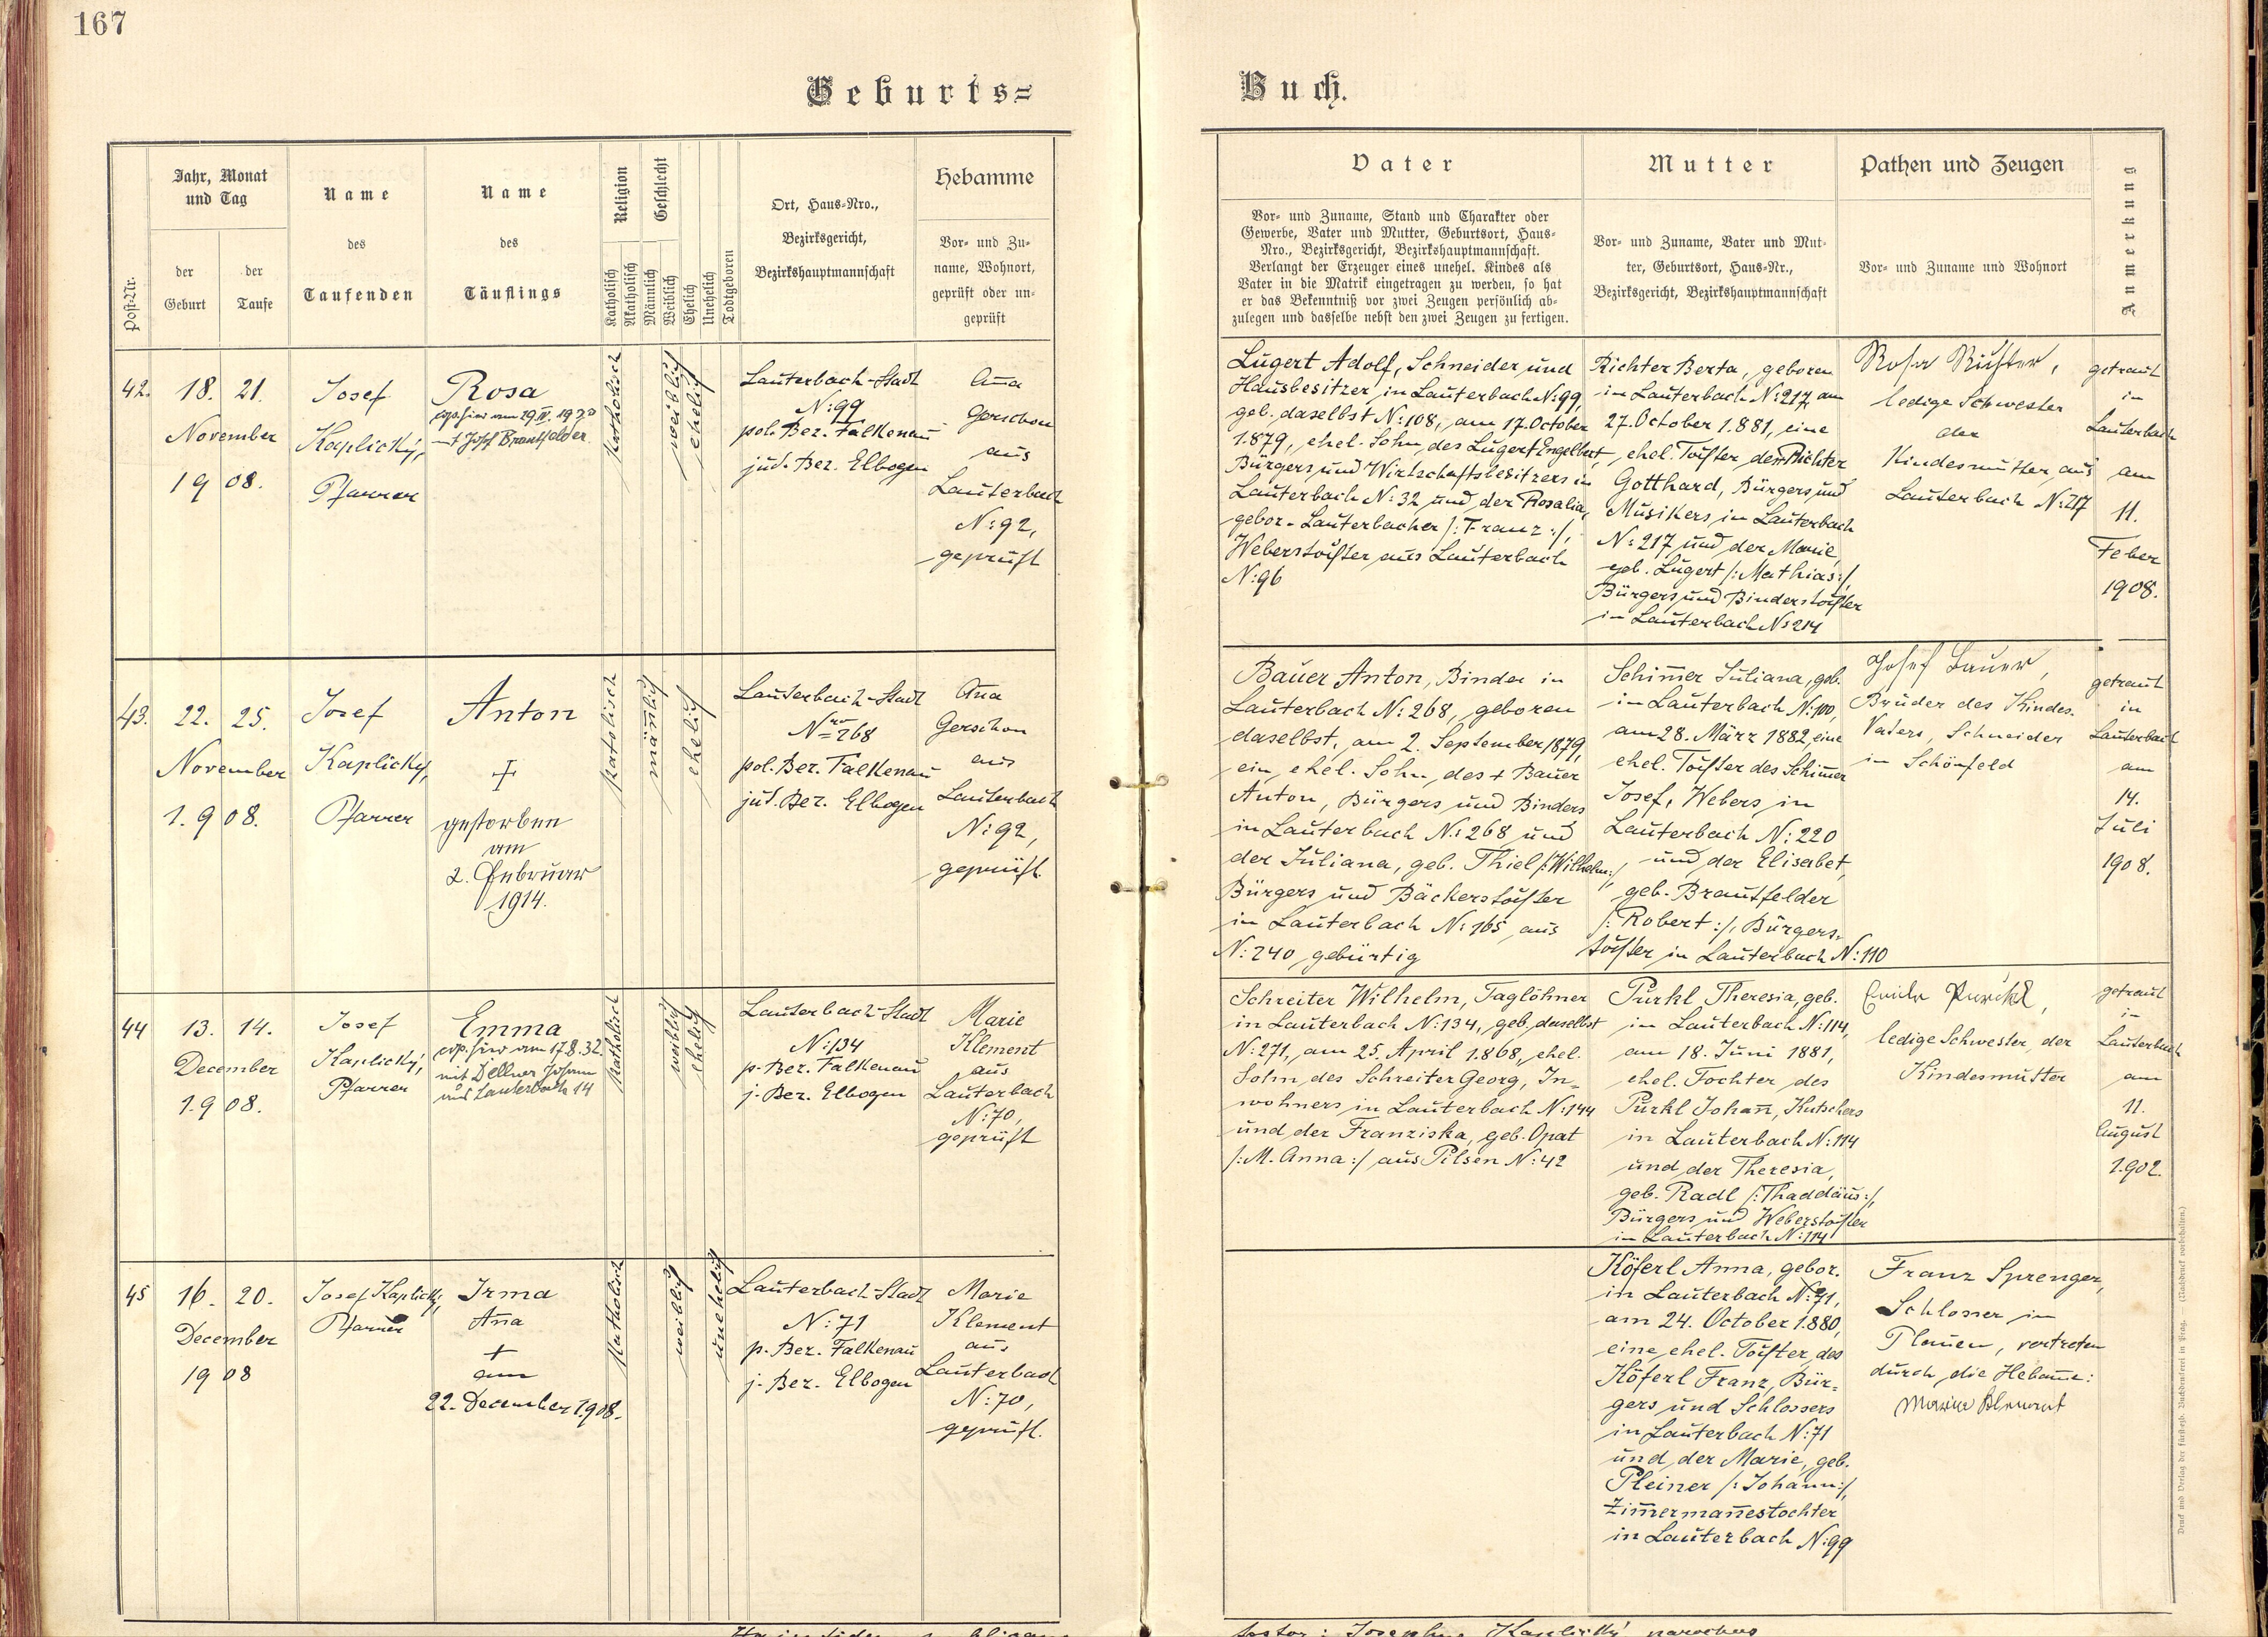 167
Geburts=
Buch.
Post-Nr.
Jahr, Monat
und Tag
der
Geburt
der
Taufe
Name
des
Taufenden
Name
des
Täuflings
Religion
Katholisch
Akatholisch
Geschlecht
Männlich
Weiblich
Ehelich
Unehelich
Todtgeboren
Ort, Haus=Nro.,
Bezirksgericht,
Bezirkshauptmannschaft
Hebamme
Vor= und Zu=
name, Wohnort,
geprüft oder un=
geprüft
Vater
Vor= und Zuname, Stand und Charakter oder
Gewerbe, Vater und Mutter, Geburtsort, Haus=
Nro., Bezirksgericht, Bezirkshauptmannschaft.
Verlangt der Erzeuger eines unehel. Kindes als
Vater in die Matrik eingetragen zu werden, so hat
er das Bekenntniß vor zwei Zeugen persönlich ab=
zulegen und dasselbe nebst den zwei Zeugen zu fertigen.
Mutter
Vor= und Zuname, Vater und Mut=
ter, Geburtsort, Haus=Nr.,
Bezirksgericht, Bezirkshauptmannschaft
Pathen und Zeugen
Vor= und Zuname und Wohnort
Anmerkung
42.
18. 21.
November
1908.
Josef
Kaplický,
Pfarrer
Rosa
cop. hier am 29. IV. 1930
mit Josef Brantfelder
Katholisch
weiblich
ehelich
Lauterbach-Stadt
N: 99
pol. Bez. Falkenau
jud. Bez. Elbogen
Anna
Gerschon
aus
Lauterbach
N: 92,
geprüft
Lugert Adolf, Schneider und
Hausbesitzer, in Lauterbach N: 99,
geb. daselbst N: 108, am 17. October
1.879, ehel. Sohn des Lugert Engelbert,
Bürgers und Wirtschaftsbesitzers in
Lauterbach N: 32 und der Rosalia,
gebor. Lauterbacher /: Franz :/,
Weberstochter aus Lauterbach
N: 96
Richter Berta, geboren
in Lauterbach N: 217, am
27. October 1.881, eine
ehel. Tochter des Richter
Gotthard, Bürgers und
Musikers in Lauterbach
N: 217 und der Marie,
geb. Lugert /: Mathias :/,
Bürgers und Binderstochter
in Lauterbach N: 214
Rosa Richter,
ledige Schwester
der
Kindesmutter, aus
Lauterbach N: 217
getraut
in
Lauterbach
am
11.
Feber
1908.
43.
22. 25.
November
1.908.
Josef
Kaplicky,
Pfarrer
Anton
+
gestorben
am
2. Februar
1914.
Katolisch
männlich
ehelich
Lauterbach-Stadt
Nro 268
pol. Bez. Falkenau
jud. Bez. Elbogen
Anna
Gerschon
aus
Lauterbach
N: 92,
geprüft.
Bauer Anton, Binder in
Lauterbach N: 268, geboren
daselbst, am 2. September 1879,
ein ehel. Sohn des + Bauer
Anton, Bürgers und Binders
in Lauterbach N: 268 und
der Juliana, geb. Thiel /: Wilhelm :/,
Bürgers und Bäckerstochter
in Lauterbach N: 165, aus
N: 240 gebürtig
Schimmer Juliana, geb.
in Lauterbach N: 100,
am 28. März 1882, eine
ehel. Tochter des Schimmer
Josef, Webers in
Lauterbach N: 220
und der Elisabet,
geb. Brautfelder
/: Robert :/, Bürgers-
tochter in Lauterbach N: 110
Josef Bauer,
Bruder des Kindes-
Vaters, Schneider
in Schönfeld
getraut
in
Lauterbach
am
14.
Juli
1908.
44
13. 14.
December
1.908.
Josef
Kaplický,
Pfarrer
Emma
cop. hier am 17.8.32.
mit Dellner Johann
aus Lauterbach 14
Katholisch
weiblich
ehelich
Lauterbach-Stadt
N: 134
p. Bez. Falkenau
j. Bez. Elbogen
Marie
Klement
aus
Lauterbach
N: 70,
geprüft
Schreiter Wilhelm, Taglöhner
in Lauterbach N: 134, geb. daselbst
N: 271, am 25. April 1.868, ehel.
Sohn des Schreiter Georg, In-
wohners in Lauterbach N: 144
und der Franziska, geb. Opat
/: M. Anna :/ aus Pilsen N: 42
Purkl Theresia, geb.
in Lauterbach N: 114,
am 18. Juni 1881,
ehel. Tochter des
Purkl Johann, Kutschers
in Lauterbach N: 114
und der Theresia,
geb. Radl /: Thaddäus :/,
Bürgers und Weberstochter
in Lauterbach N: 114
ledige Schwester der
Kindesmutter
getraut
in
Lauterbach
am
11.
August
1.902.
45
16. 20.
December
1908
Josef Kaplický,
Pfarrer
Irma
Anna
+
am
22. December 1.908.
Katholisch
weiblich
unehelich
Lauterbach-Stadt
N: 71
p. Bez. Falkenau
j. Bez. Elbogen
Marie
Klement
aus
Lauterbach
N: 70,
geprüft.
Köferl Anna, gebor.
in Lauterbach N: 71,
am 24. October 1.880,
eine ehel. Tochter des
Köferl Franz, Bür-
gers und Schlossers
in Lauterbach N: 71
und der Marie, geb.
Pleiner /: Johann :/,
Zimmermannestochter
in Lauterbach N: 99
Franz Sprenger,
Schlosser in
Plauen, vertreten
durch die Hebamme:
Marie Klement
Druck und Verlag der fürsterzb. Buchdruckerei in Prag. — (Nachdruck vorbehalten.)
Josephus Kaplický parochus